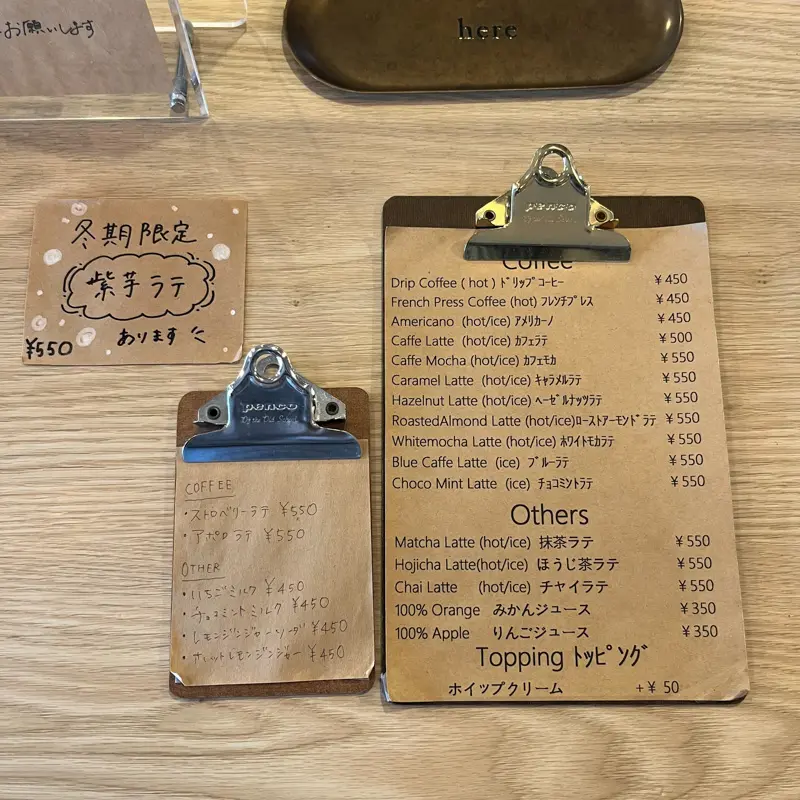 お願いします
here
冬期限定
紫芋ラテ
あります
¥550
penco
COFFEE
・ストロベリーラテ ¥550
・アポロラテ ¥550
OTHER
・いちごミルク ¥450
・チョコミントミルク ¥450
・レモンジンジャーソーダ ¥450
・ホットレモンジンジャー ¥450
penco
Coffee
Drip Coffee ( hot ) ﾄﾞﾘｯﾌﾟｺｰﾋｰ ¥450
French Press Coffee (hot) ﾌﾚﾝﾁﾌﾟﾚｽ ¥450
Americano (hot/ice) ｱﾒﾘｶｰﾉ ¥450
Caffe Latte (hot/ice) ｶﾌｪﾗﾃ ¥500
Caffe Mocha (hot/ice) ｶﾌｪﾓｶ ¥550
Caramel Latte (hot/ice) ｷｬﾗﾒﾙﾗﾃ ¥550
Hazelnut Latte (hot/ice) ﾍｰｾﾞﾙﾅｯﾂﾗﾃ ¥550
RoastedAlmond Latte (hot/ice)ﾛｰｽﾄｱｰﾓﾝﾄﾞﾗﾃ ¥550
Whitemocha Latte (hot/ice) ﾎﾜｲﾄﾓｶﾗﾃ ¥550
Blue Caffe Latte (ice) ﾌﾞﾙｰﾗﾃ ¥550
Choco Mint Latte (ice) ﾁｮｺﾐﾝﾄﾗﾃ ¥550
Others
Matcha Latte (hot/ice) 抹茶ラテ ¥550
Hojicha Latte(hot/ice) ほうじ茶ラテ ¥550
Chai Latte (hot/ice) チャイラテ ¥550
100% Orange みかんジュース ¥350
100% Apple りんごジュース ¥350
Topping ﾄｯﾋﾟﾝｸﾞ
ホイップクリーム +¥ 50